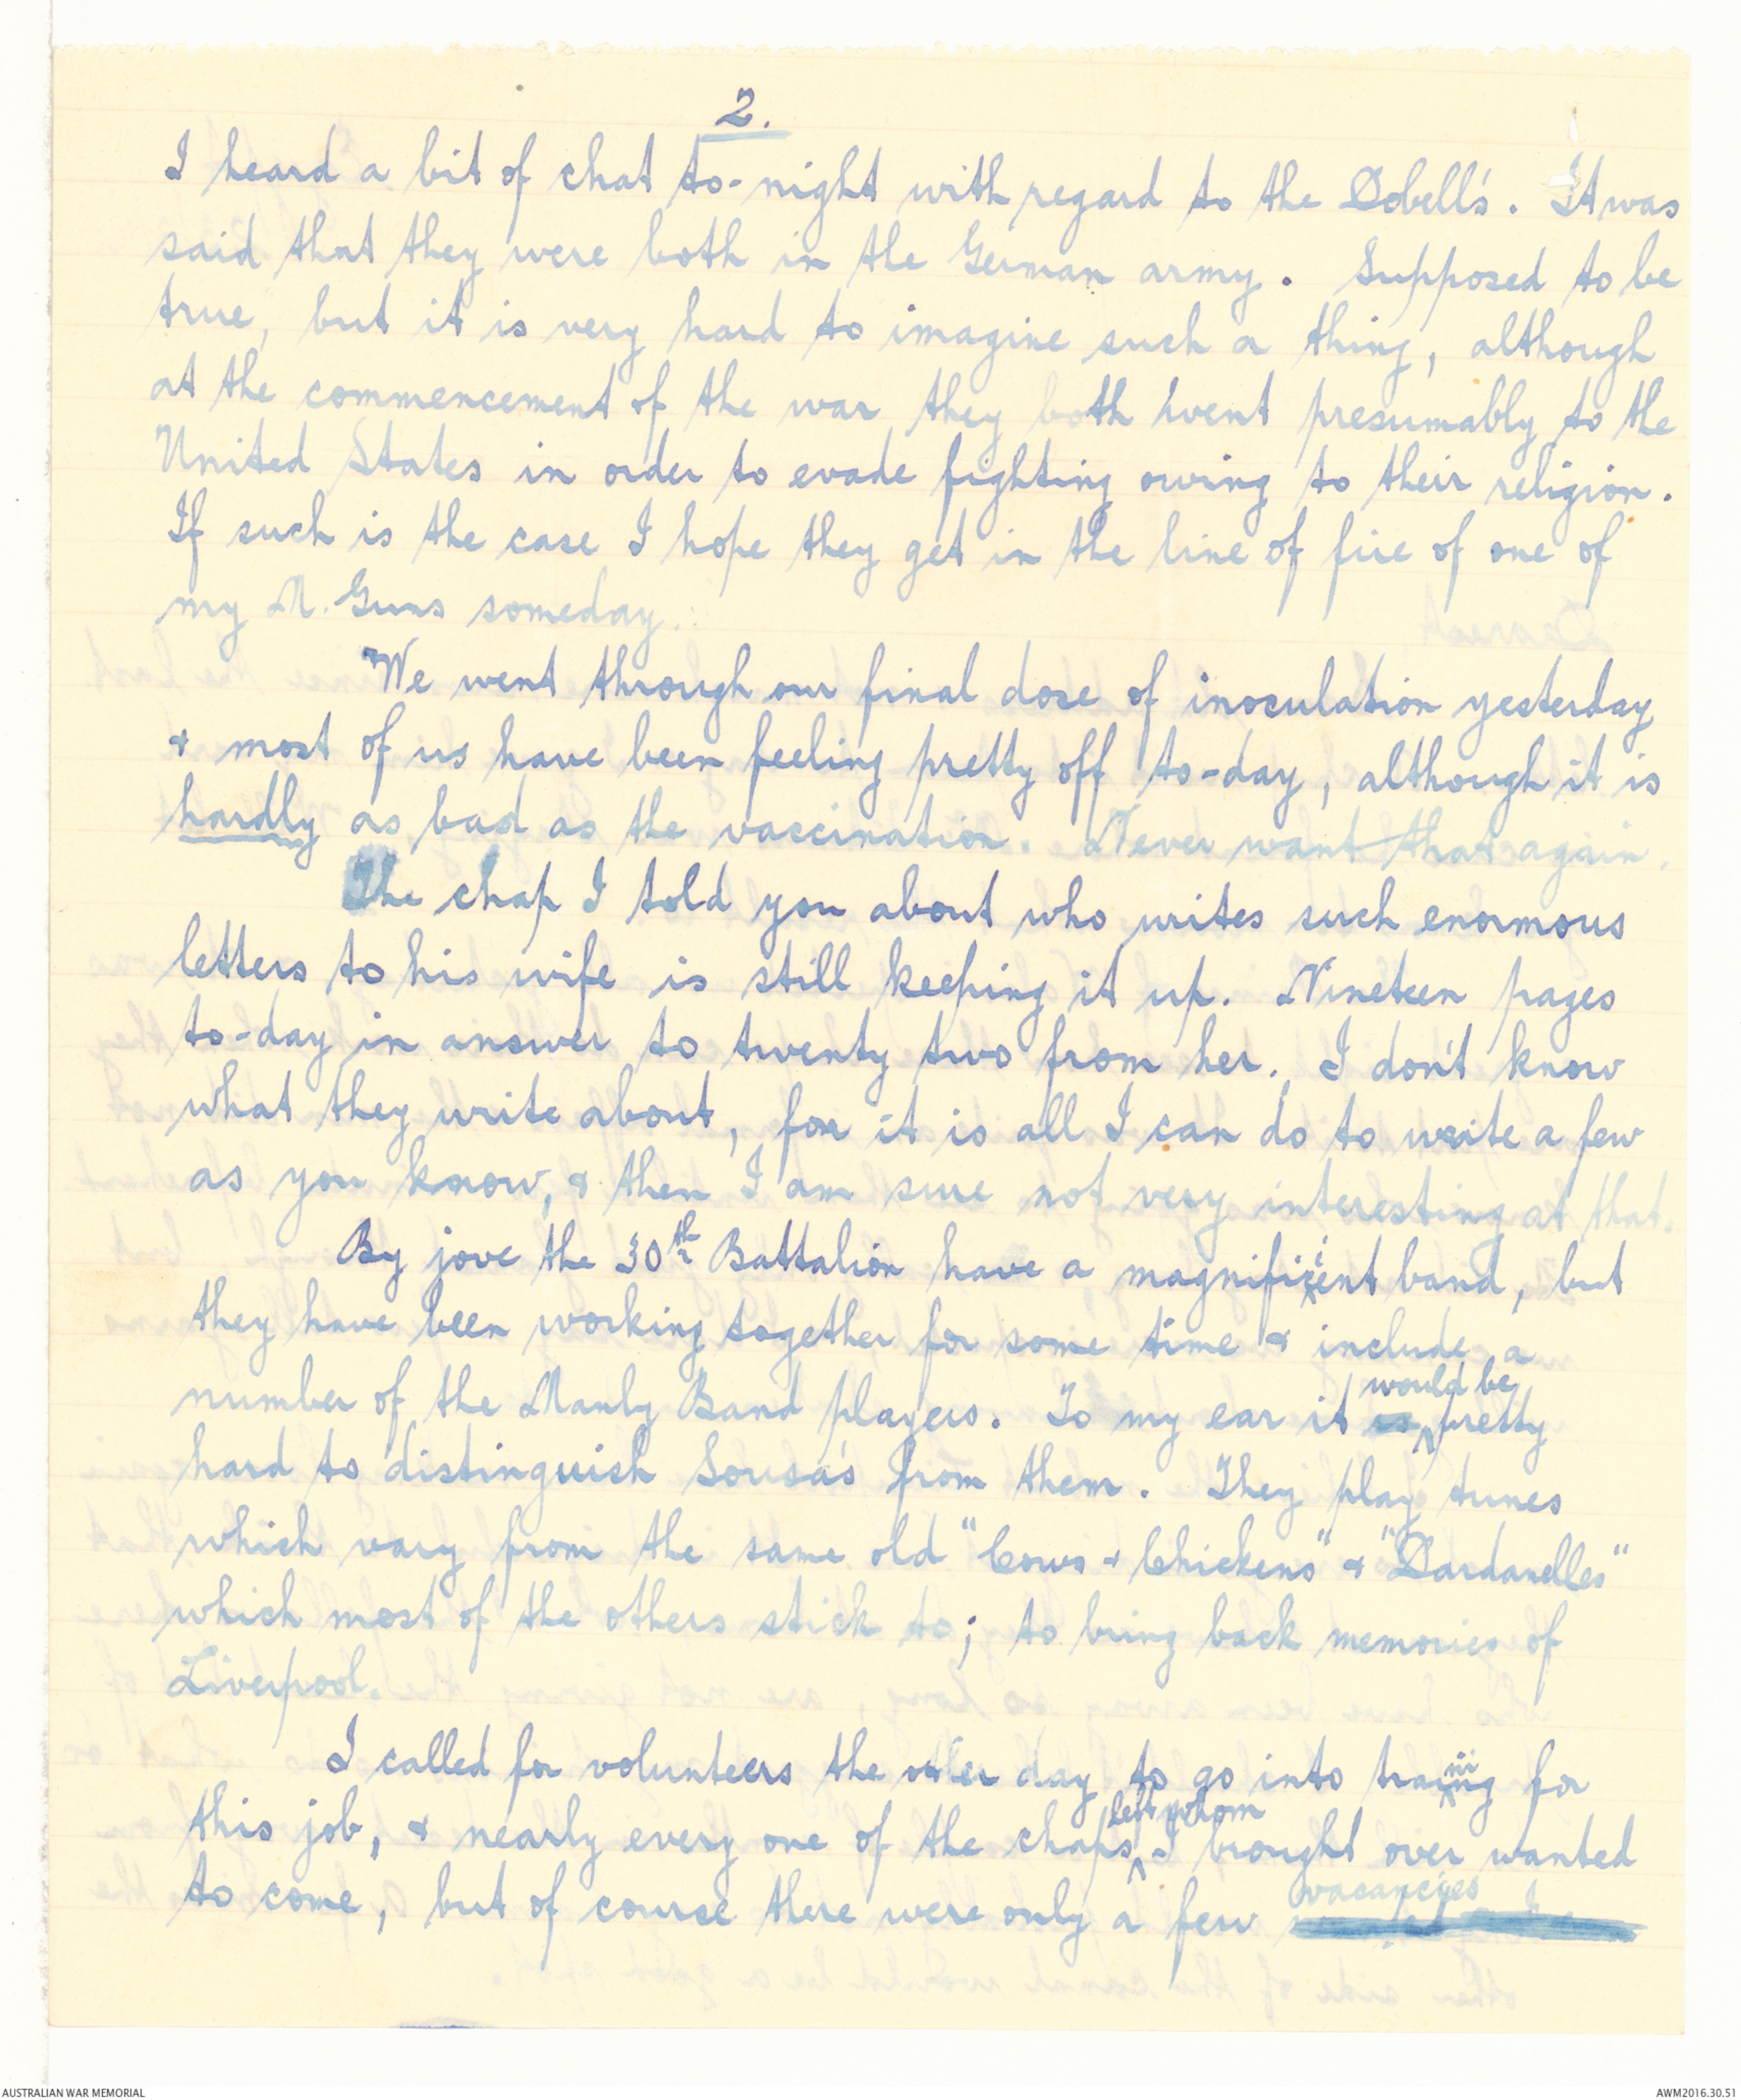 2.
I heard a bit of chat to-night with regard to the Dobell's. It was
said that they were both in the German army. Supposed to be
true, but it is very hard to imagine such a thing, although
at the commencement of the war they both went presumably to the
United States in order to evade fighting owing to their religion.
If such is the case I hope they get in the line of fire of one of
my M. Guns someday.
We went through our final dose of inoculation yesterday
& most of us have been feeling pretty off to-day, although it is
hardly as bad as the vaccination. Never want that again.
The chap I told you about who writes such enormous
letters to his wife is still keeping it up. Nineteen pages
to-day in answer to twenty two from her. I don't know
what they write about, for it is all I can do to write a few
as you know, & then I am sure not very interesting at that.
By jove the 30th Battalion have a magnificent band, but
they have been working together for some time & include a
number of the Manly Band players. To my ear it would be pretty
hard to distinguish Sousa's from them. They play tunes
which vary from the same old "Cows & Chickens" & "Dardanelles"
which most of the others stick to; to bring back memories of
Liverpool.
I called for volunteers the other day to go into training for
this job, & nearly every one of the chaps left whom I brought over wanted
to come, but of course there were only a few vacancies
AUSTRALIAN WAR MEMORIAL
AWM2016.30.51